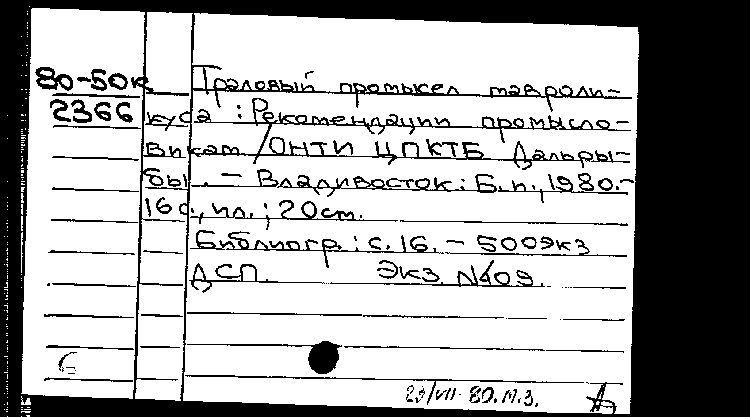 80-50к Траловый промысел мавроли-
2366 куса : Рекомендации промысло-
викам /ОНТИ ЦПКТБ Дальры-
бы. - Владивосток: Б.и., 1980.-
16 с., ил. ; 20 см.
Библиогр.: с. 16. - 500экз
ДСП. Экз. №409.
6
29/VII-80.